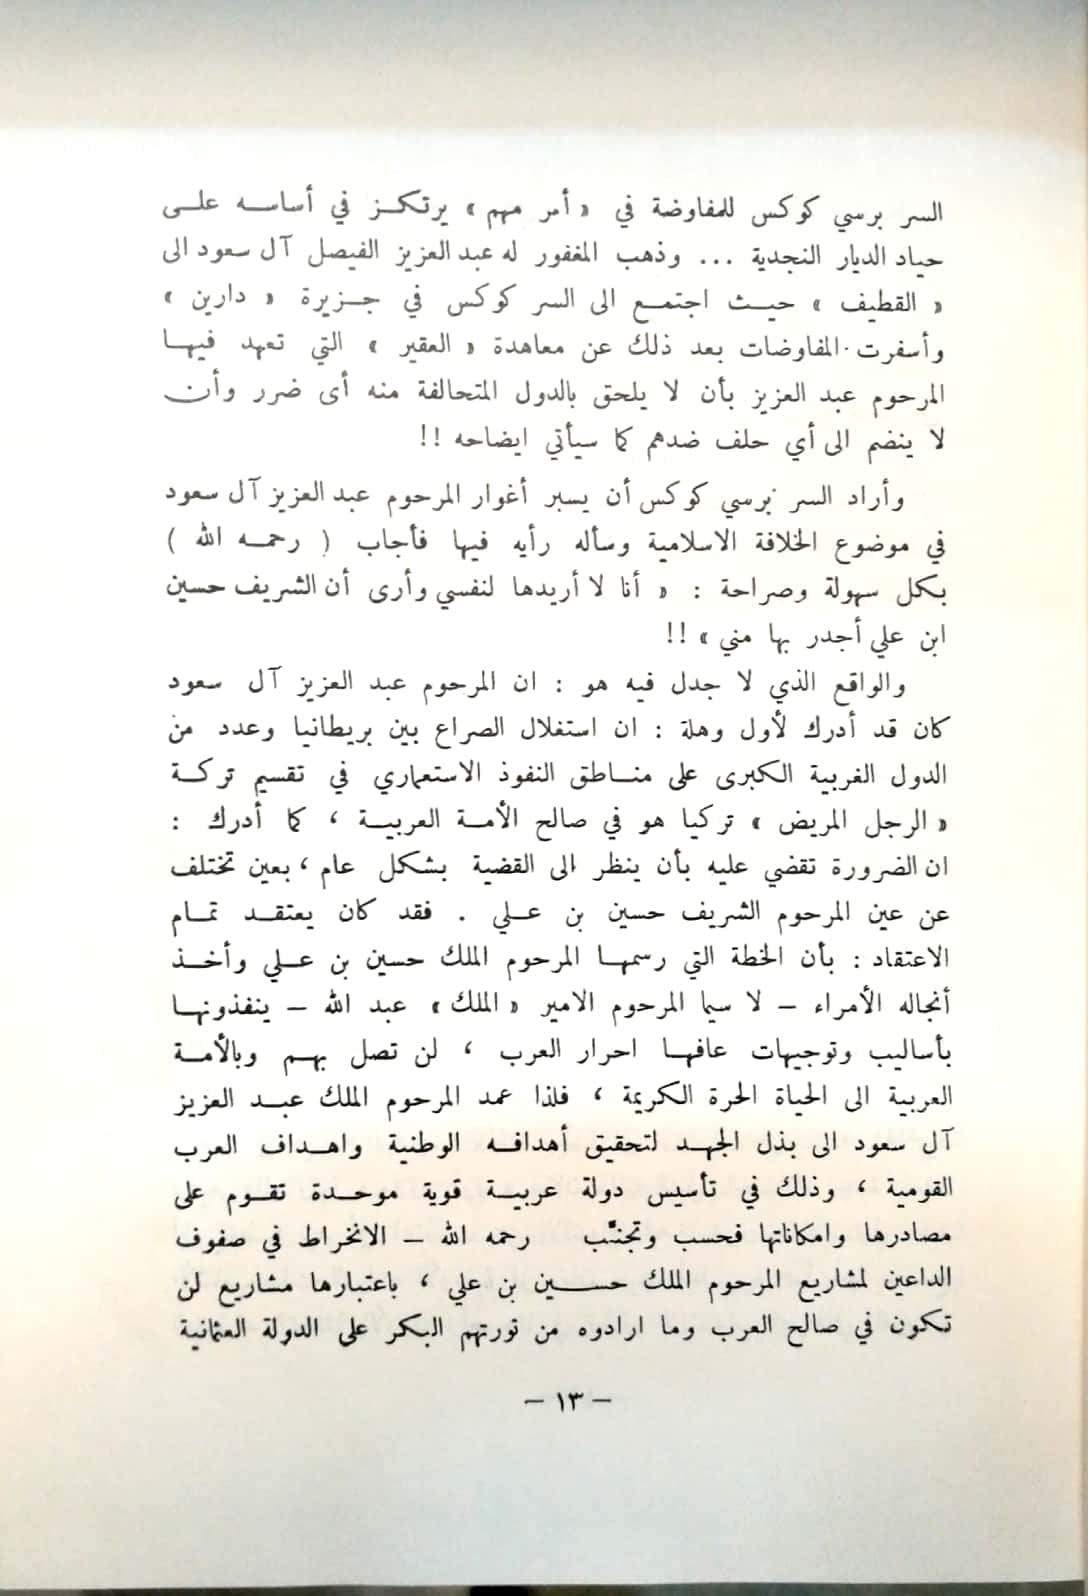 السر برسي كوكس للمفاوضة في « أمر مهم » يرتكز في أساسه على
حياد الديار النجدية ... وذهب المغفور له عبد العزيز الفيصل آل سعود الى
« القطيف » حيث اجتمع الى السر كوكس في جزيرة « دارين »
وأسفرت المفاوضات بعد ذلك عن معاهدة « العقير » التي تعهد فيها
المرحوم عبد العزيز بأن لا يلحق بالدول المتحالفة منه أى ضرر وأن
لا ينضم الى أي حلف ضدهم كما سيأتي ايضاحه !!
وأراد السر برسي كوكس أن يسبر أغوار المرحوم عبد العزيز آل سعود
في موضوع الخلافة الاسلامية وسأله رأيه فيها فأجاب ( رحمه الله )
بكل سهولة وصراحة : « أنا لا أريدها لنفسي وأرى أن الشريف حسين
ابن علي أجدر بها مني » !!
والواقع الذي لا جدل فيه هو : ان المرحوم عبد العزيز آل سعود
كان قد أدرك لأول وهلة : ان استغلال الصراع بين بريطانيا وعدد من
الدول الغربية الكبرى على مناطق النفوذ الاستعماري في تقسيم تركة
« الرجل المريض » تركيا هو في صالح الأمة العربية ، كما أدرك :
ان الضرورة تقضي عليه بأن ينظر الى القضية بشكل عام ، بعين تختلف
عن عين المرحوم الشريف حسين بن علي . فقد كان يعتقد تمام
الاعتقاد : بأن الخطة التي رسمها المرحوم الملك حسين بن علي وأخذ
أنجاله الأمراء – لا سيما المرحوم الامير « الملك » عبد الله – ينفذونها
بأساليب وتوجيهات عافها احرار العرب ، لن تصل بهم وبالأمة
العربية الى الحياة الحرة الكريمة ، فلذا عمد المرحوم الملك عبد العزيز
آل سعود الى بذل الجهد لتحقيق أهدافه الوطنية واهداف العرب
القومية ، وذلك في تأسيس دولة عربية قوية موحدة تقوم على
مصادرها وامكاناتها فحسب وتجنَّب رحمه الله – الانخراط في صفوف
الداعين لمشاريع المرحوم الملك حسين بن علي ، باعتبارها مشاريع لن
تكون في صالح العرب وما ارادوه من ثورتهم البكر على الدولة العثمانية
– ١٣ –